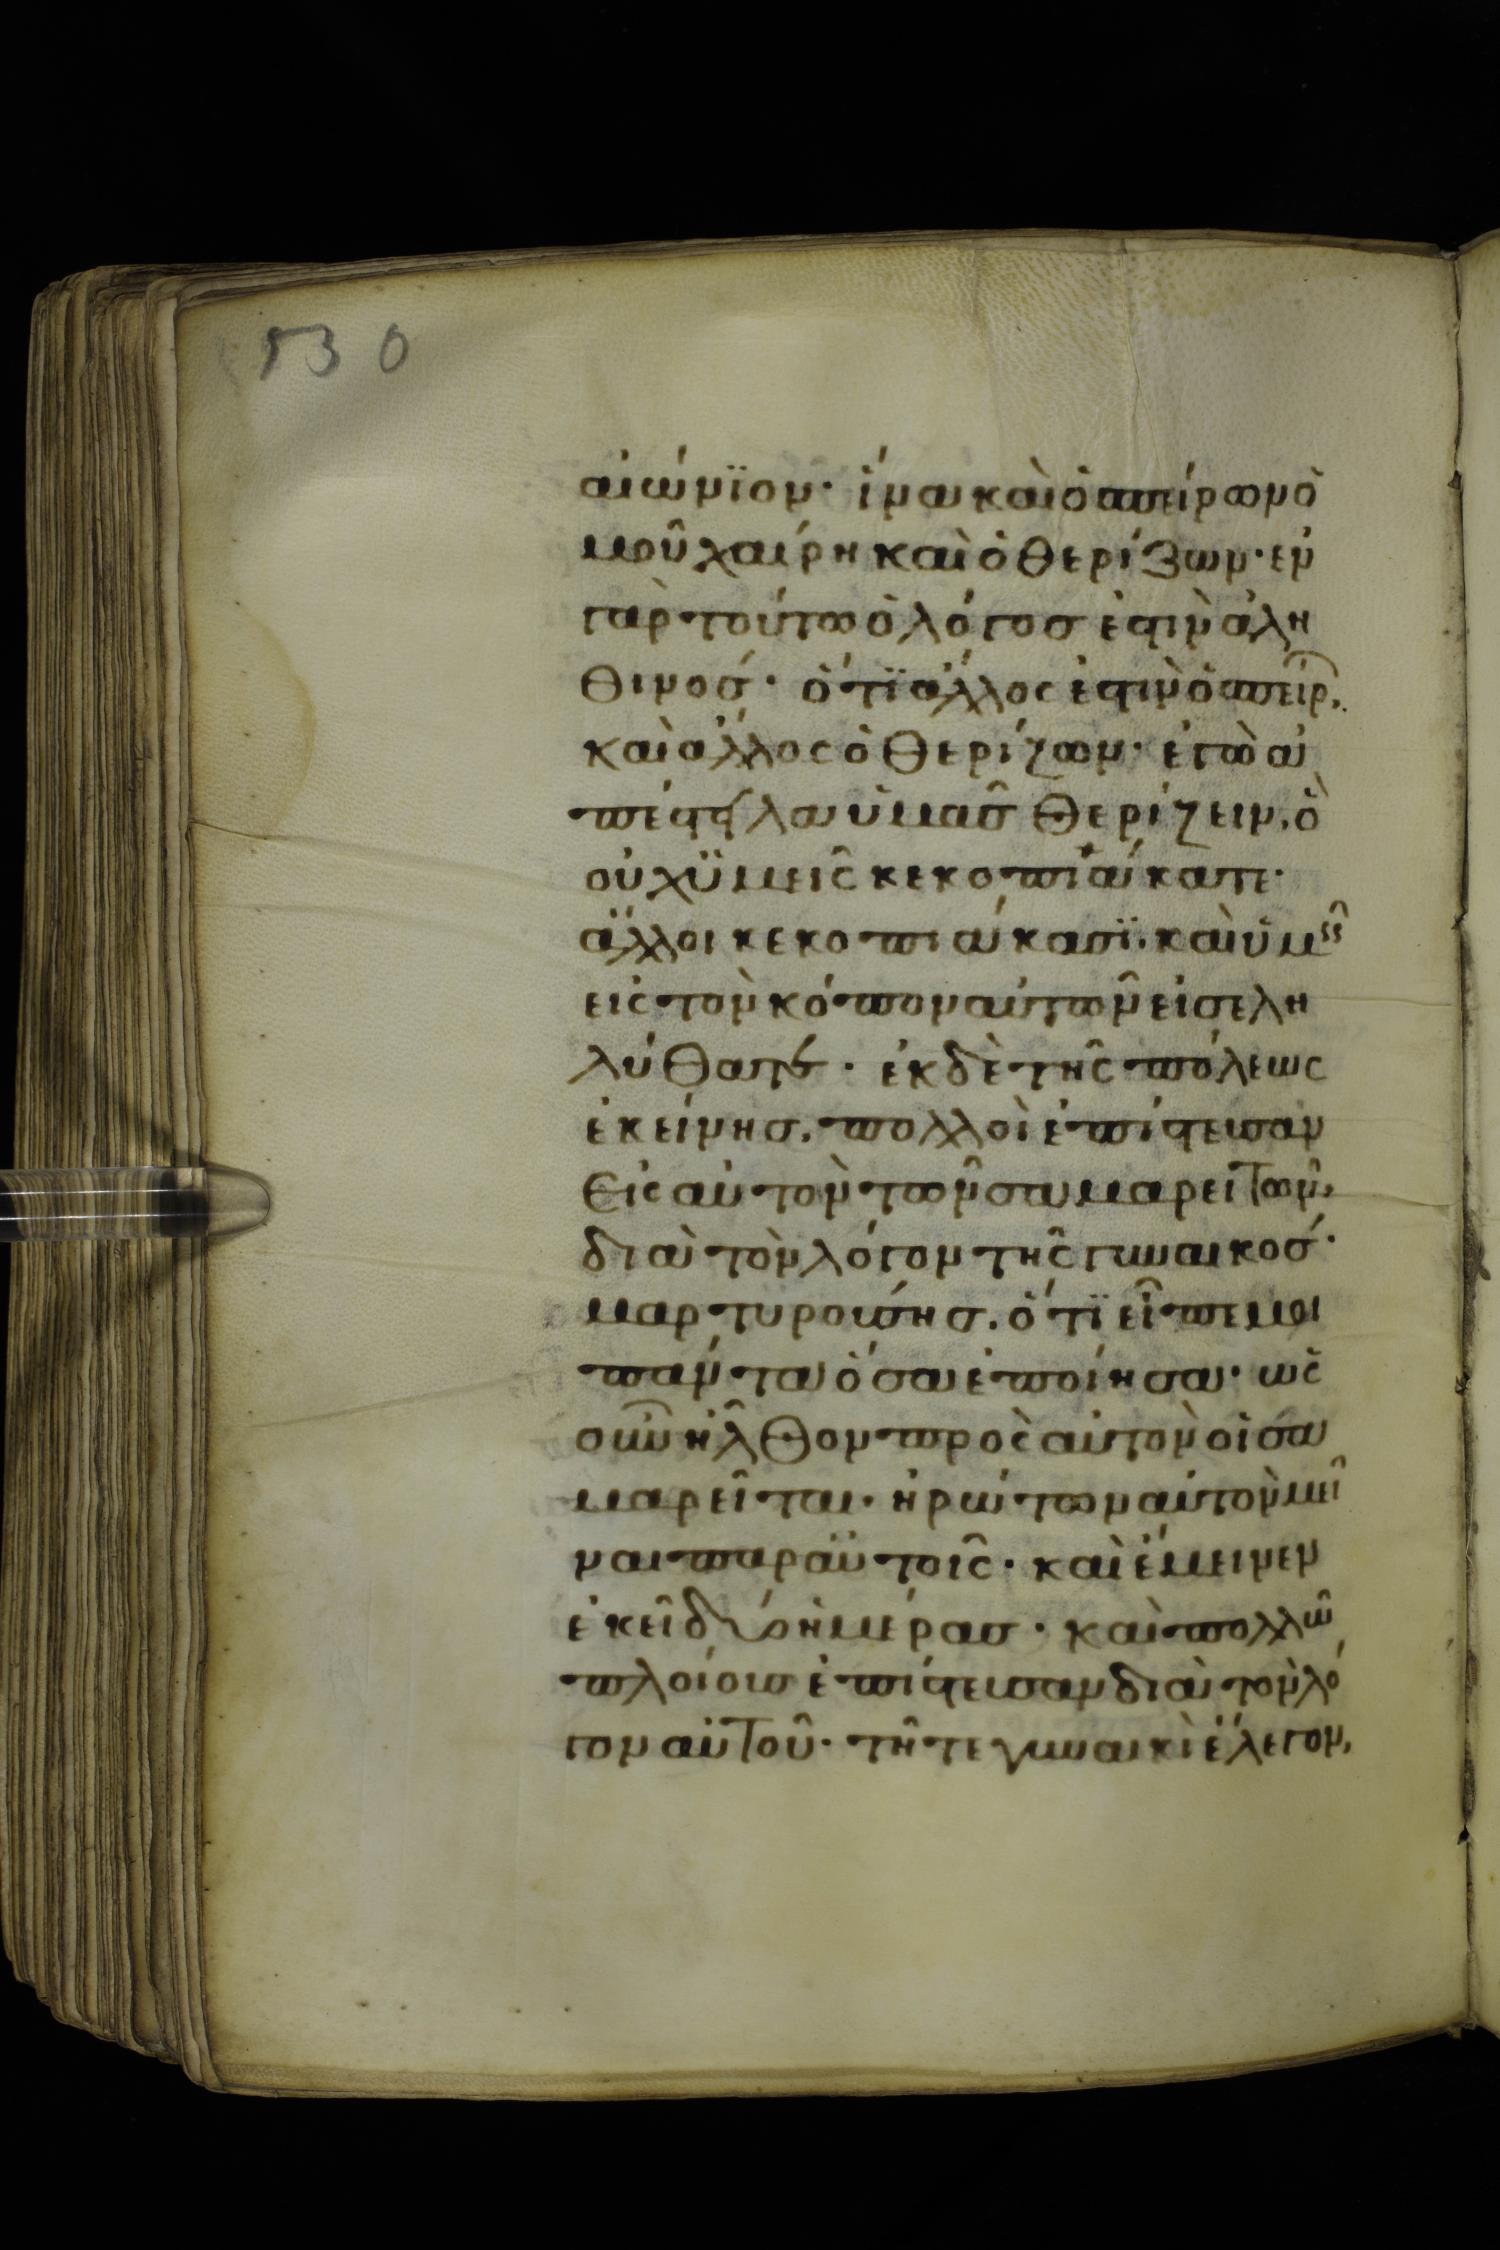 530
αἰώνϊον· ἵνα καὶ ὁ σπείρων ὁ
μοῦ χαίρη καὶ ὁ θερίζων· ἐν
γὰρ τούτω ὁ λόγοσ ἐστὶν ἀλη
θινοσ́· ὅτϊ ἄλλος ἐστὶν ὁ σπείρ,
καὶ ἄλλος ὁ θερίζων· ἐγὼ ἀ
πέστειλα ὑμασ̑ θερίζειν, ὃ
οὐχ ὑμεῖς κεκοπιάκατε·
ἄλλοι κεκοπιάκασϊ. καὶ ὑμεῖς
εἰς τὸν κόπον αὐτῶν εἰσελη
λύθατε· ἐκ δὲ τῆς πόλεως
ἐκείνησ, πολλοὶ ἐπίστευσαν
Εἰς αὐτὸν τῶν σαμαρειτῶν,
διὰ τὸν λόγον τῆς γυναικοσ́·
μαρτυρούσησ. ὅτϊ εἶπε μοι
πάντα ὅσα ἐποίησα· ὡς
συνῆλθον πρὸς αὐτὸν οἱ σα
μαρεῖται· ἠρώτων αὐτὸν μεῖ
ναι παρ αὐτοῖς· καὶ ἔμεινεν
ἐκεῖ δύο ἡμέρασ· καὶ πολλῶ
πλοίουσ ἐπίστευσαν διὰ τὸν λό
γον αὐτοῦ· τῆ τε γυναικὶ ἔλεγον,